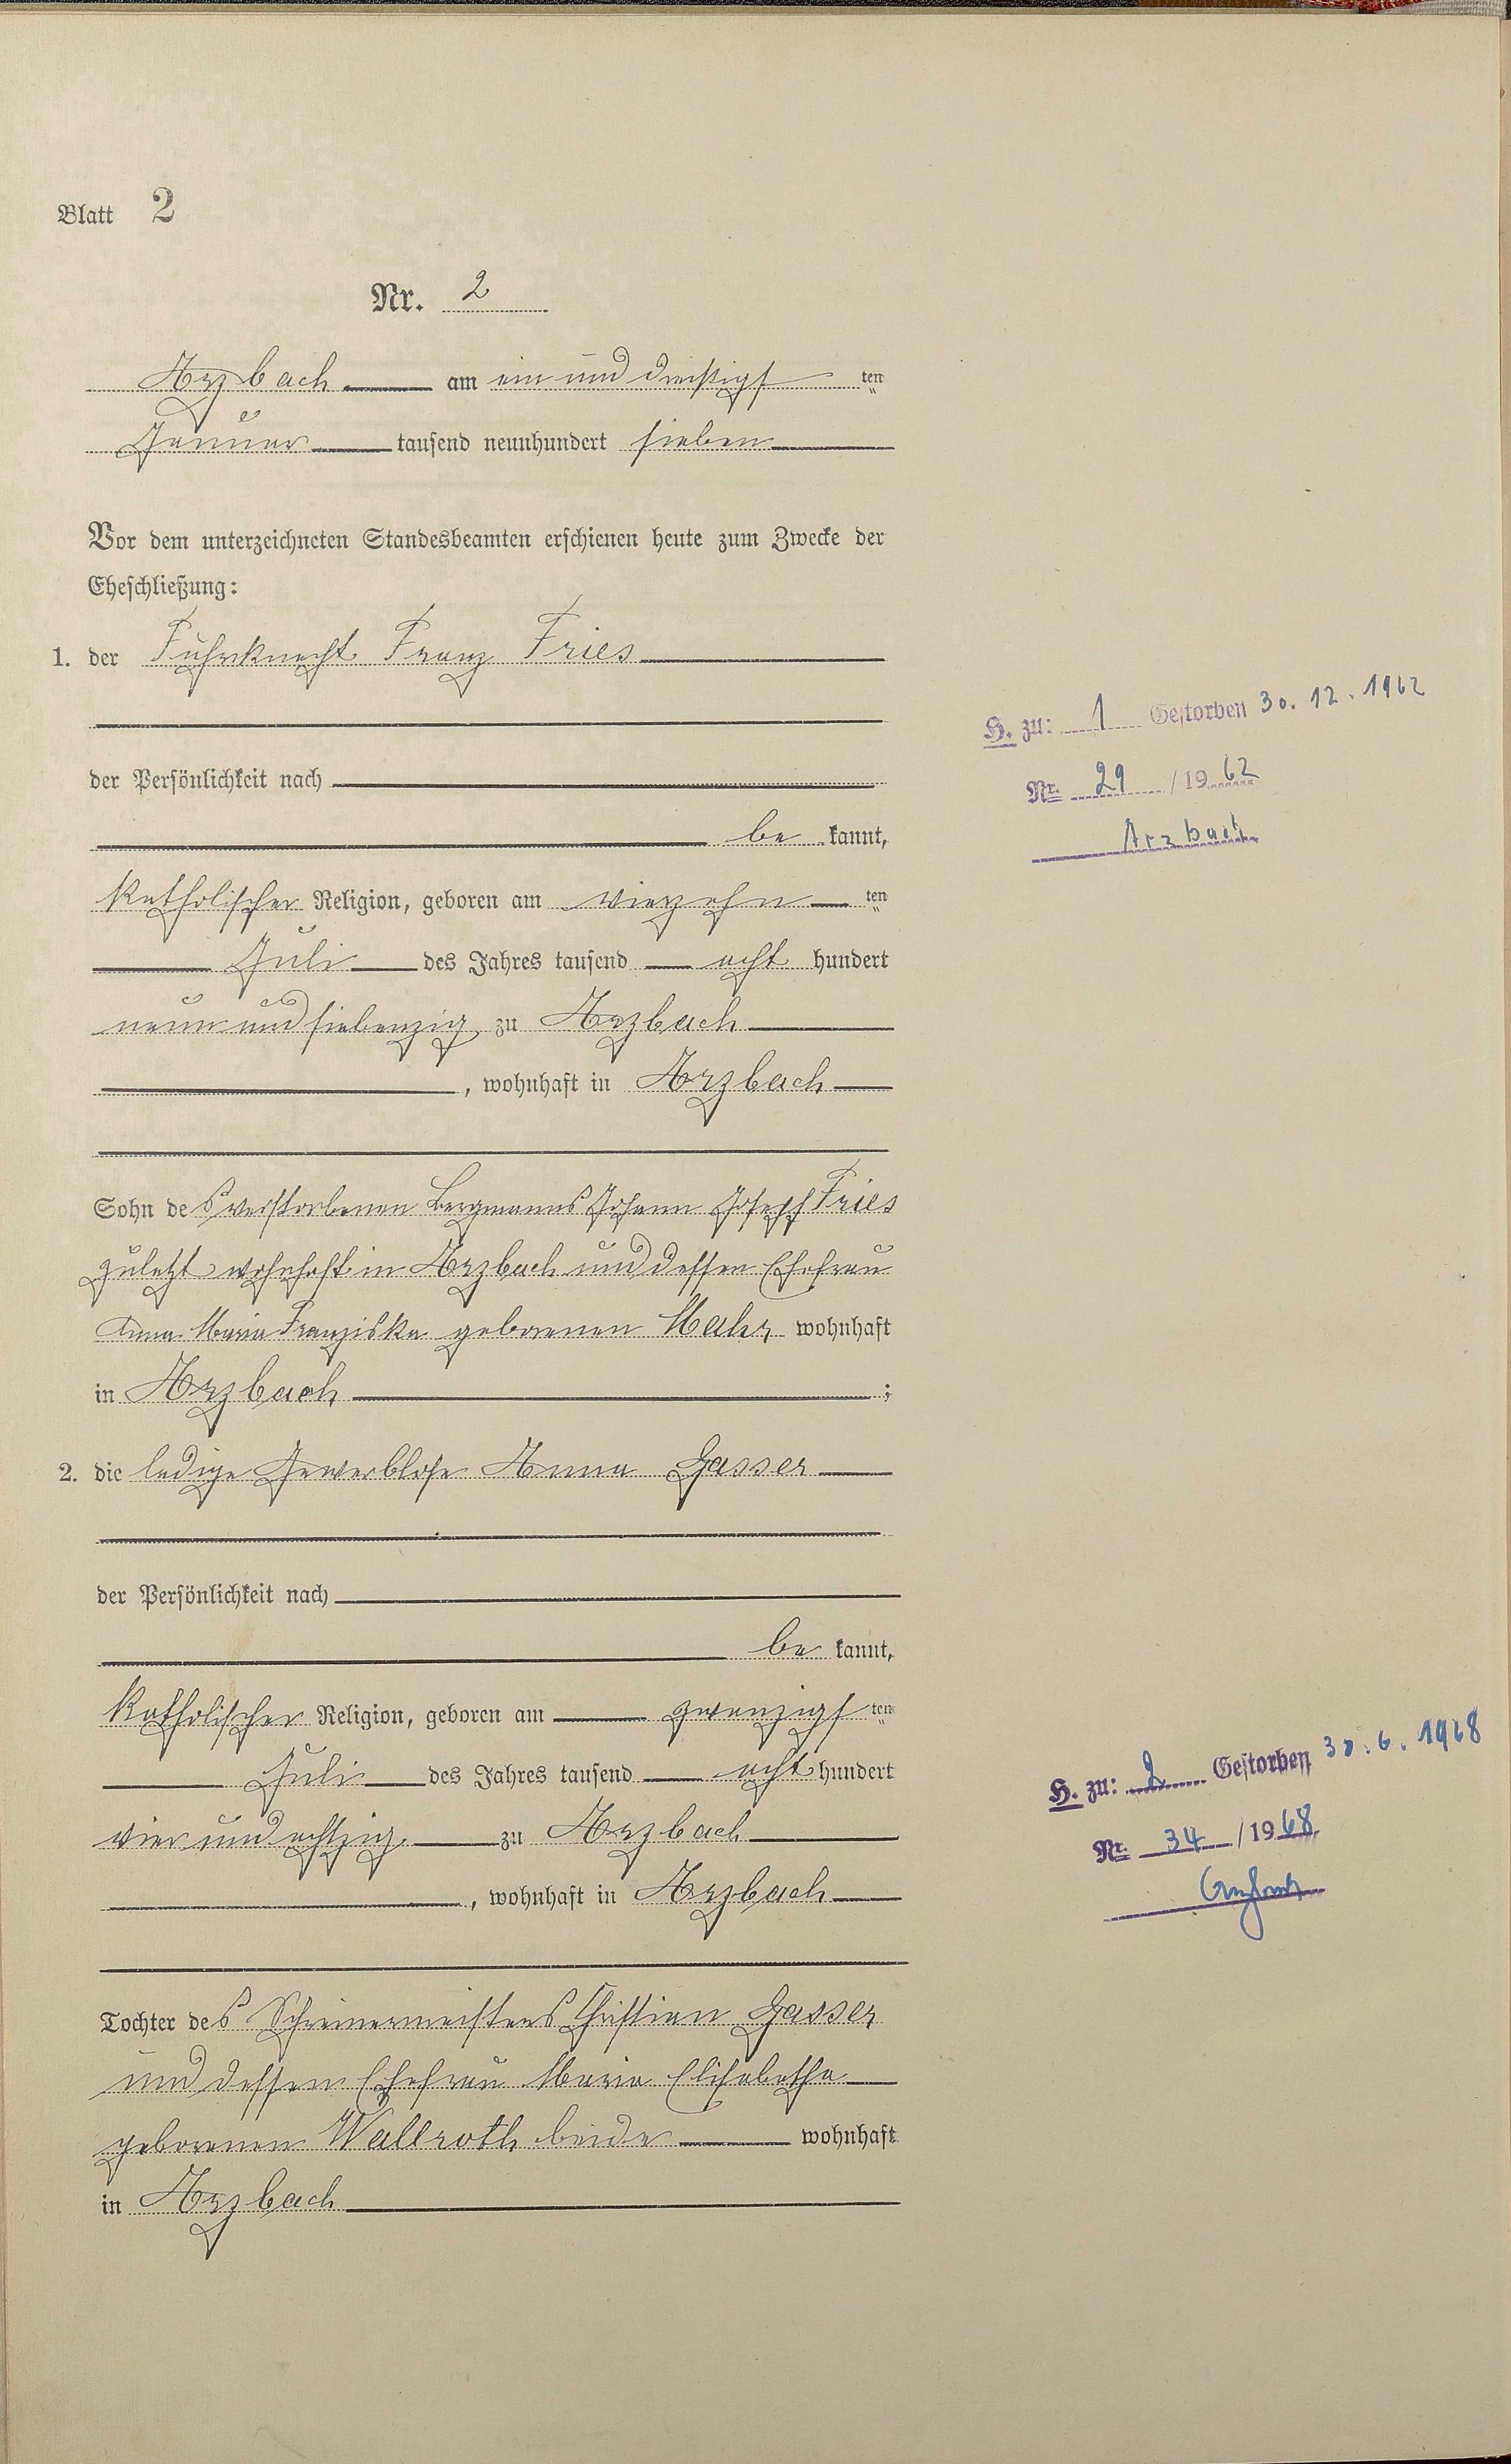 Blatt 2
Nr. 2
Arzbach am ein und dreißigsten
Januar tausend neunhundert sieben
Vor dem unterzeichneten Standesbeamten erschienen heute zum Zwecke der
Eheschließung:
1. der Fuhrknecht Franz Fries
der Persönlichkeit nach
be kannt,
katholischer Religion, geboren am vierzehn ten
Juli des Jahres tausend acht hundert
neun und siebenzig zu Arzbach
, wohnhaft in Arzbach
Sohn des verstorbenen Bergmanns Johann Joseph Fries
zuletzt wohnhaft in Arzbach und dessen Ehefrau
Anna Maria Franziska geborenen Mahr wohnhaft
in Arzbach ;
H. zu: 1 Gestorben 30. 12. 1962
Nr. 29 / 1962
Arzbach
2. die ledige Gewerblose Anna Gasser
der Persönlichkeit nach
be kannt,
katholischer Religion, geboren am zwanzigsten
Juli des Jahres tausend acht hundert
vier und achtzig zu Arzbach
, wohnhaft in Arzbach
Tochter des Schreinermeisters Christian Gasser
und dessen Ehefrau Maria Elisabetha
geborenen Wallroth beide wohnhaft
in Arzbach
H. zu: 2 Gestorben 30. 6. 1968
Nr. 34 / 1968